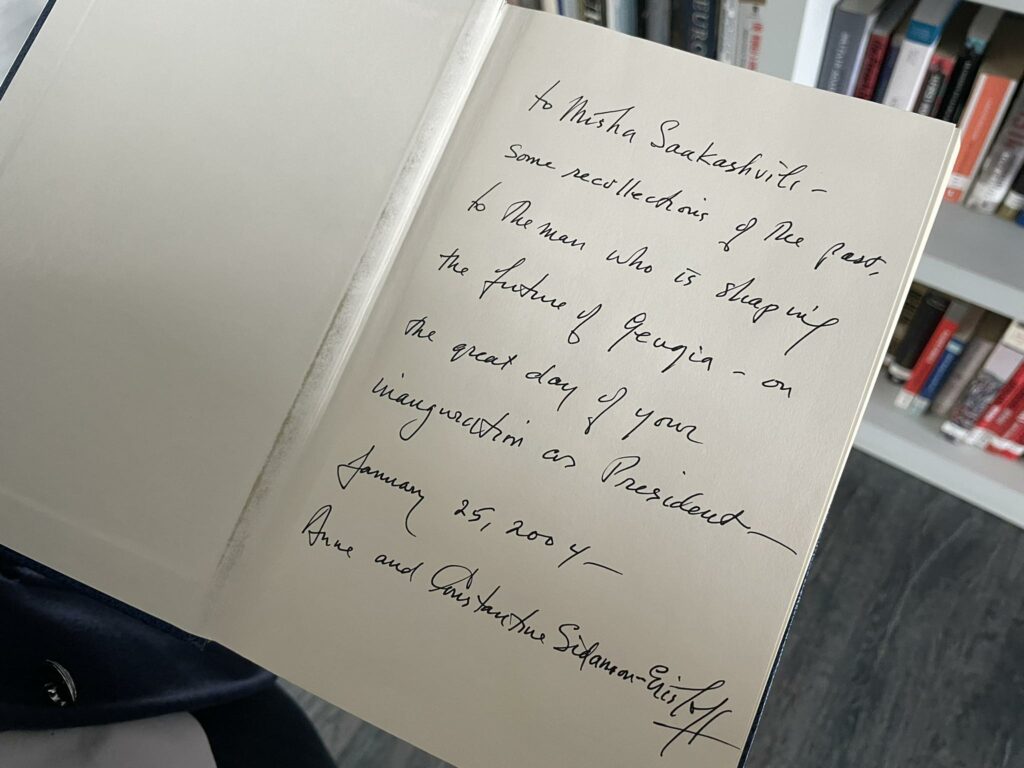 to Misha Saakashvili –
some recollections of the past,
to the man who is shaping
the future of Georgia – on
the great day of your
inauguration as President –
January 25, 2004 –
Anne and Constantine Sidamon-Eristoff